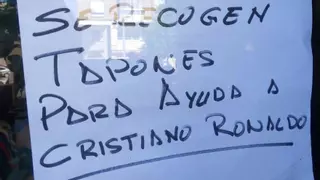 SE RECOGEN
TAPONES
PARA AYUDA A
CRISTIANO RONALDO